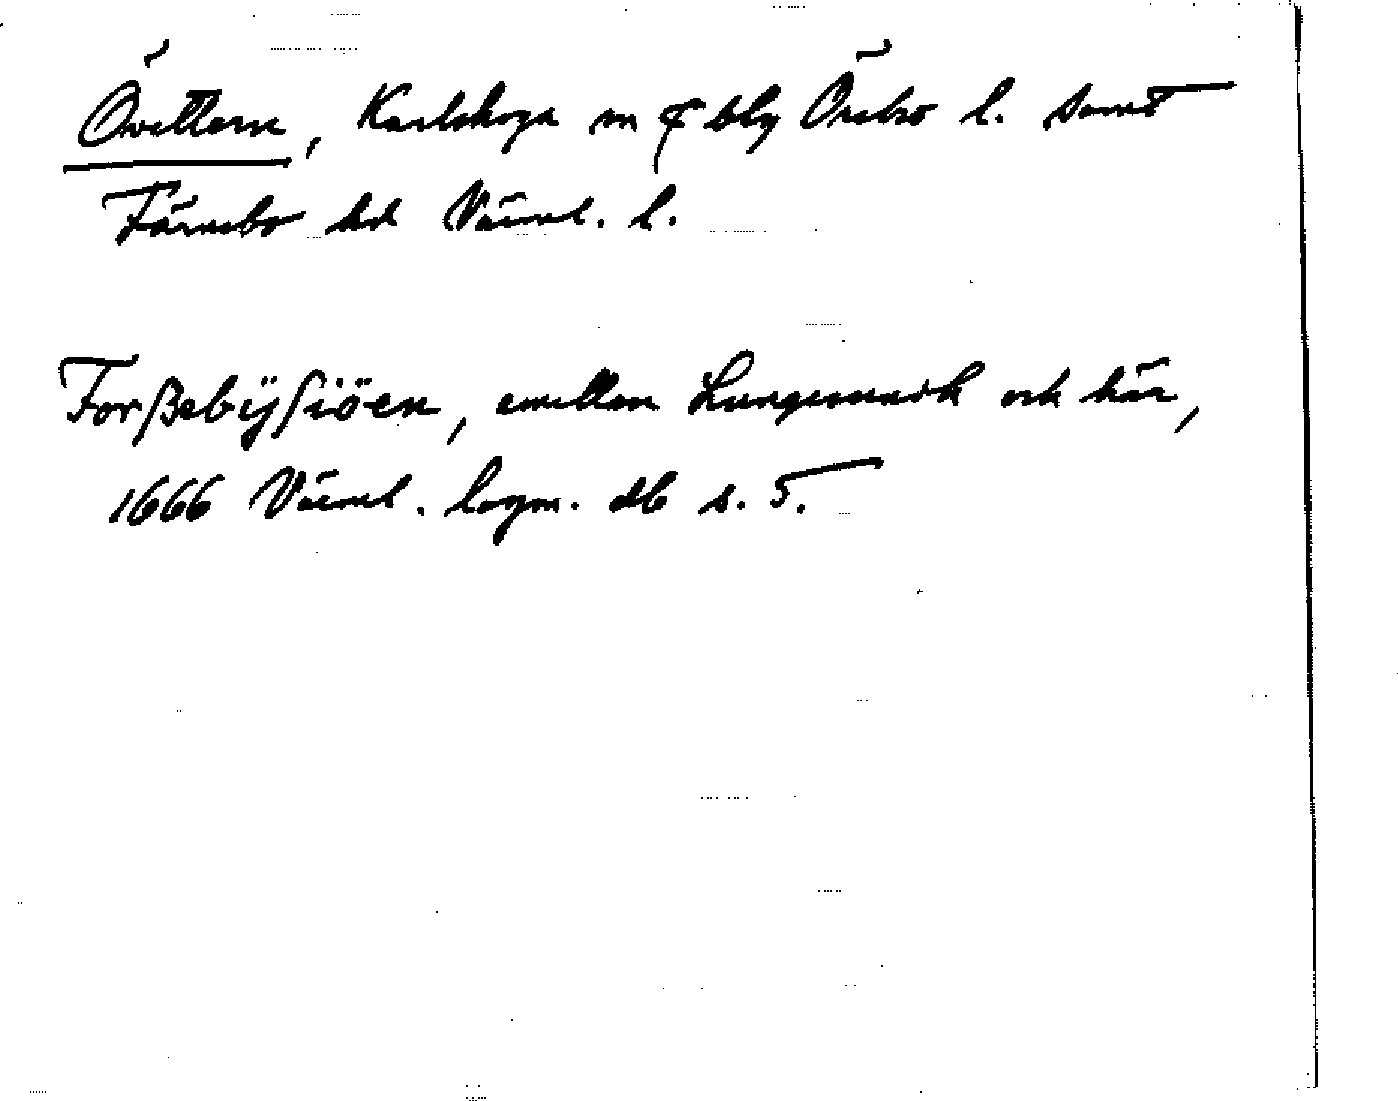 Övettern, Karlskoga sn ₵ blg Örebro l. samt
Färnebo hd Värml. l.
Forßebÿsiöen, emellan Lungsundh och här,
1666 Värml. lagm. db s. 5.